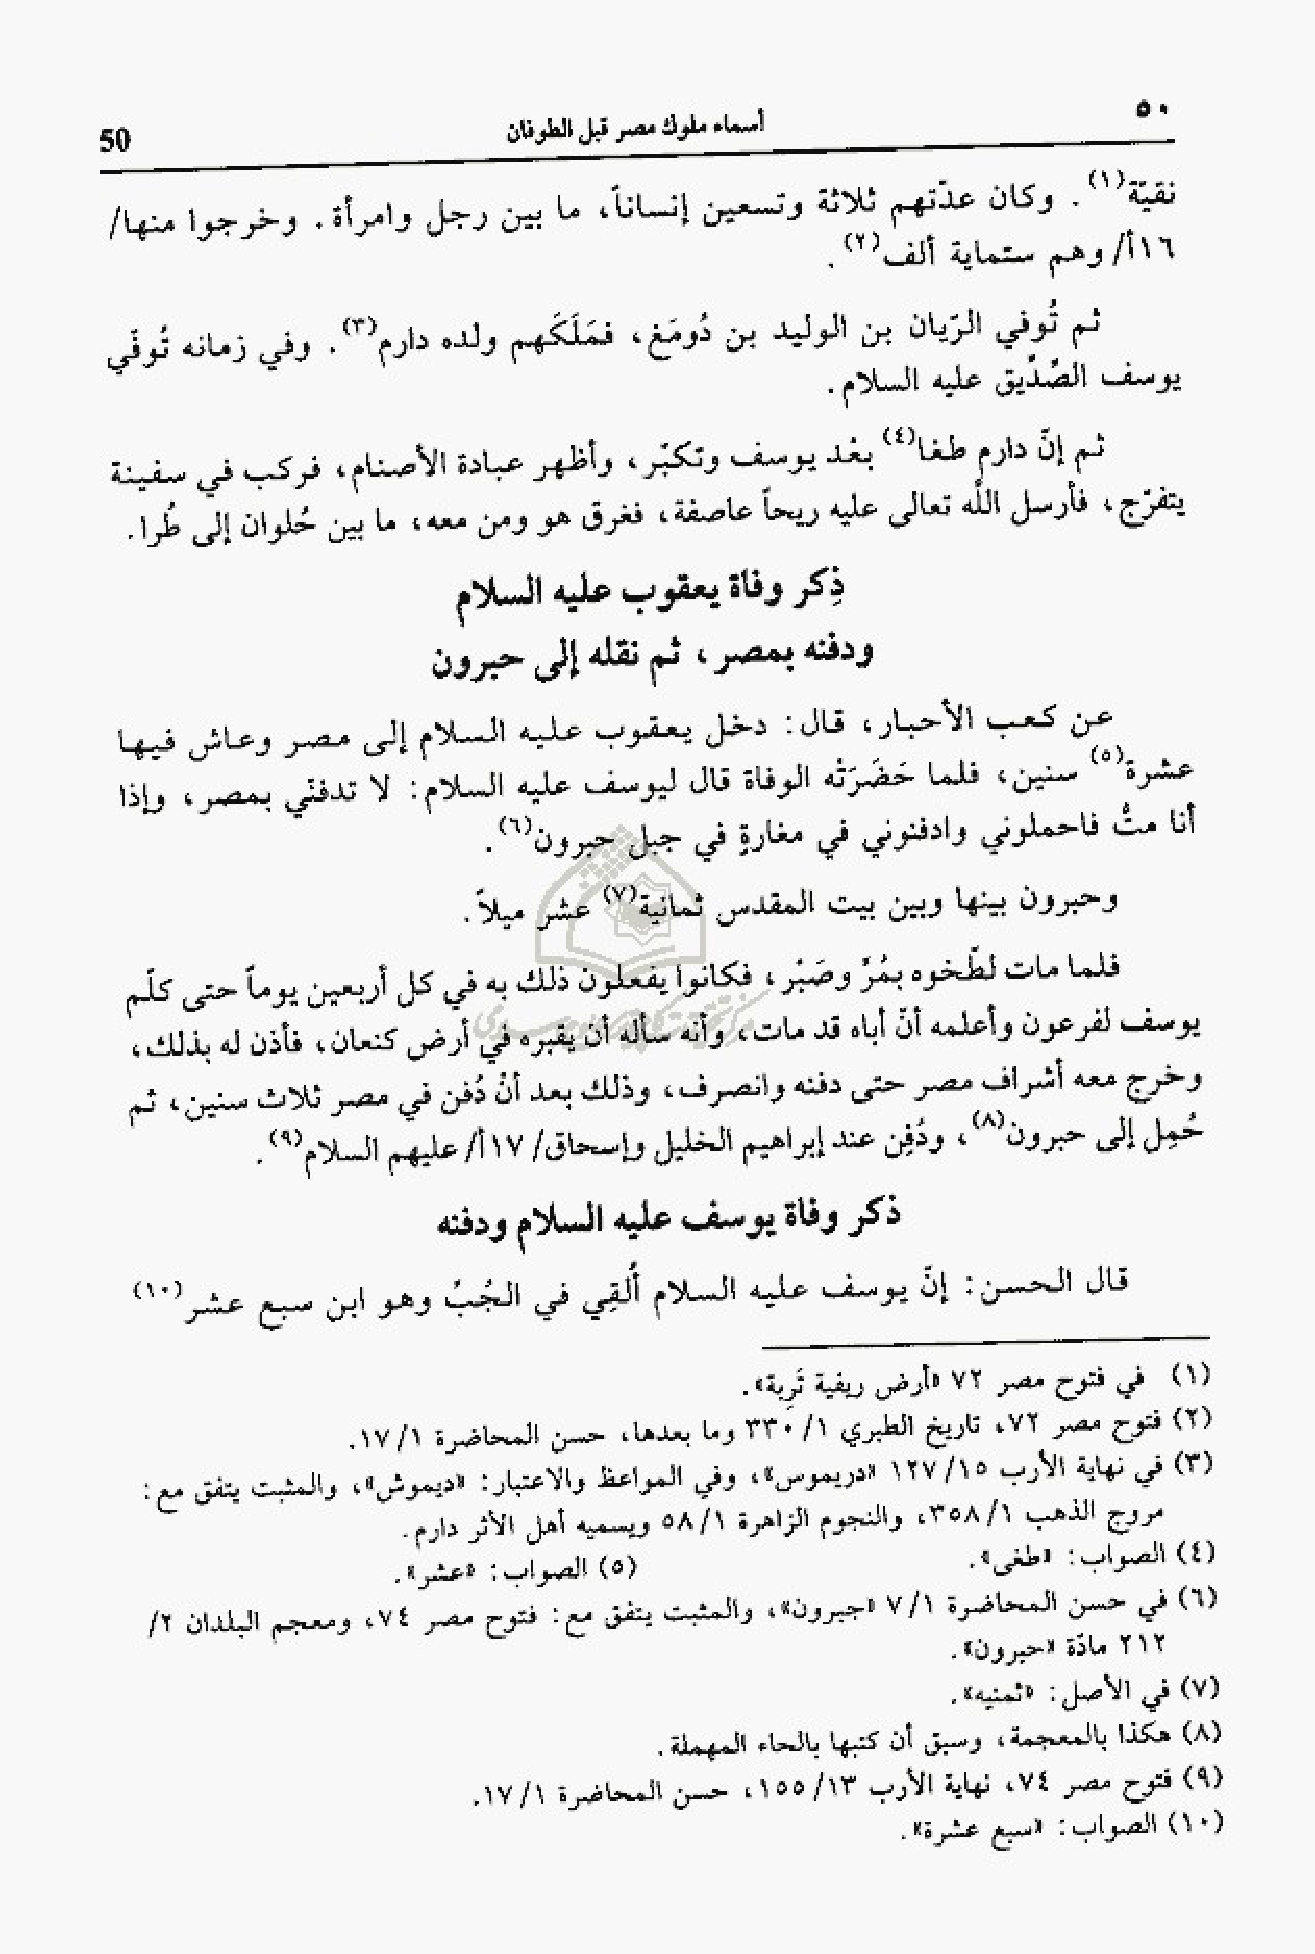 ٥٠
أسماء ملوك مصر قبل الطوفان
50
نقيّة(١). وكان عدّتهم ثلاثة وتسعين إنساناً، ما بين رجل وامرأة. وخرجوا منها/
١٦أ/ وهم ستماية ألف(٢).
ثم تُوفي الرّيان بن الوليد بن دُومَغ، فمَلَكَهم ولده دارم(٣). وفي زمانه تُوفّي
يوسف الصّدّيق عليه السلام.
ثم إنّ دارم طغا(٤) بعْد يوسف وتكبّر، وأظهر عبادة الأصنام، فركب في سفينة
يتفرّج، فأرسل اللّه تعالى عليه ريحاً عاصفة، فغرق هو ومن معه، ما بين حُلوان إلى طُرا.
ذِكر وفاة يعقوب عليه السلام
ودفنه بمصر، ثم نقله إلى حبرون
عن كعب الأحبار، قال: دخل يعقوب عليه السلام إلى مصر وعاش فيها
عشرة(٥) سنين، فلما حَضَرَتْه الوفاة قال ليوسف عليه السلام: لا تدفنّي بمصر، وإذا
أنا متُّ فاحملوني وادفنوني في مغارةٍ في جبل حبرون(٦).
وحبرون بينها وبين بيت المقدس ثمانية(٧) عشر ميلاً.
فلما مات لطّخوه بمُرّ وصَبْر، فكانوا يفعلون ذلك به في كل أربعين يوماً حتى كلّم
يوسف لفرعون وأعلمه أنّ أباه قد مات، وأنه سأله أن يقبره في أرض كنعان، فأذن له بذلك،
وخرج معه أشراف مصر حتى دفنه وانصرف، وذلك بعد أنْ دُفن في مصر ثلاث سنين، ثم
حُمِل إلى جبرون(٨)، ودُفِن عند إبراهيم الخليل وإسحاق/ ١٧أ/ عليهم السلام(٩).
ذكر وفاة يوسف عليه السلام ودفنه
قال الحسن: إنّ يوسف عليه السلام أُلقِي في الجُبّ وهو ابن سبع عشر(١٠)
(١) في فتوح مصر ٧٢ «أرض ريفية تَرِبة».
(٢) فتوح مصر ٧٢، تاريخ الطبري ١/ ٣٣٠ وما بعدها، حسن المحاضرة ١/ ١٧.
(٣) في نهاية الأرب ١٥/ ١٢٧ «دريموس»، وفي المواعظ والاعتبار: «ديموش»، والمثبت يتفق مع:
مروج الذهب ١/ ٣٥٨، والنجوم الزاهرة ١/ ٥٨ ويسميه أهل الأثر دارم.
(٤) الصواب: «طغى».
(٥) الصواب: «عشر».
(٦) في حسن المحاضرة ١/ ٧ «جبرون»، والمثبت يتفق مع: فتوح مصر ٧٤، ومعجم البلدان ٢/
٢١٢ مادّة «حبرون».
(٧) في الأصل: «ثمنيه».
(٨) هكذا بالمعجمة، وسبق أن كتبها بالحاء المهملة.
(٩) فتوح مصر ٧٤، نهاية الأرب ١٣/ ١٥٥، حسن المحاضرة ١/ ١٧.
(١٠) الصواب: «سبع عشرة».